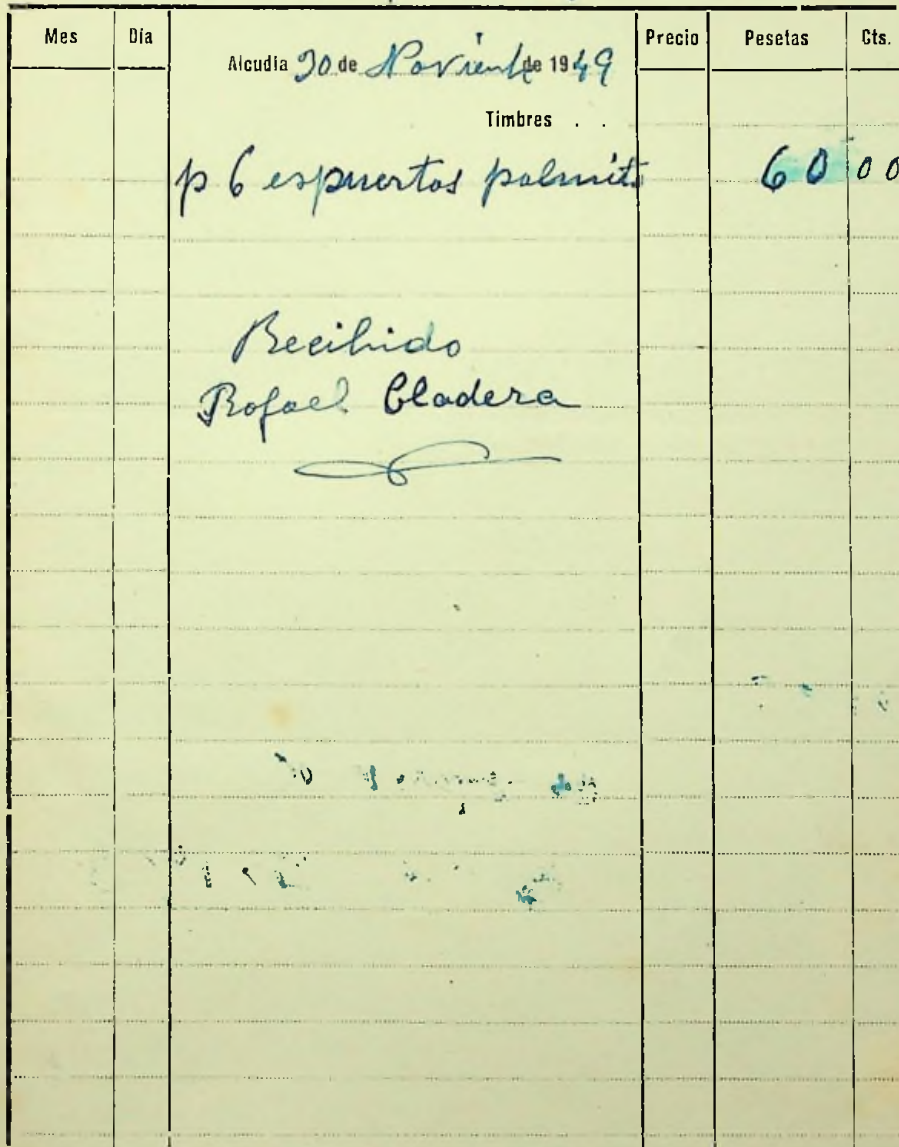 Mes Día Precio Pesetas Cts.
Alcudia 30 de Noviembre de 1949
Timbres . .
p 6 espuertas palmito 60 00
Recibido
Rafael Cladera